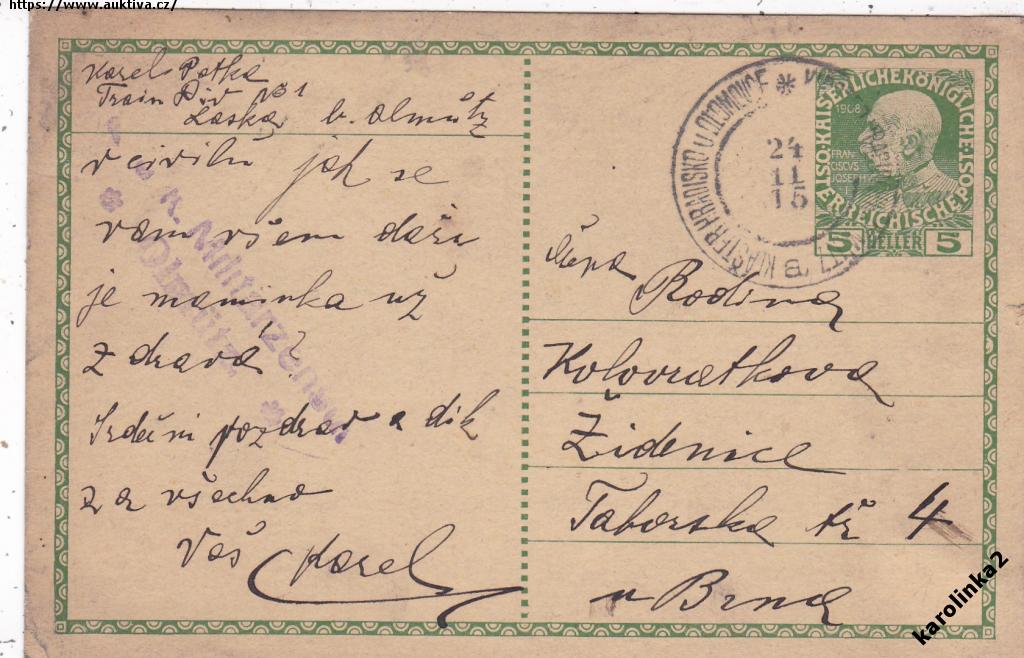 https://www.auktiva.cz/
Karel Potka
Train Div No 1
Laska b. Olmütz
v civilu jak se
vám všem daří
je maminka už
zdravá?
Srdečni pozdrav a dík
za všechno
Váš Karel
K. Militärzensur
Olmütz
KLÁŠTER HRADISKO U OLOMOUCE
24
11
15
KAISERLICHEKÖNIGLICHE
ÖSTERREICHISCHE POST
1908
FRAN
CISCVS
JOSEPH I
5 HELLER 5
Rodina
Kolovratkova
Židenice
Taborska tř 4
u Brna
karolinka2